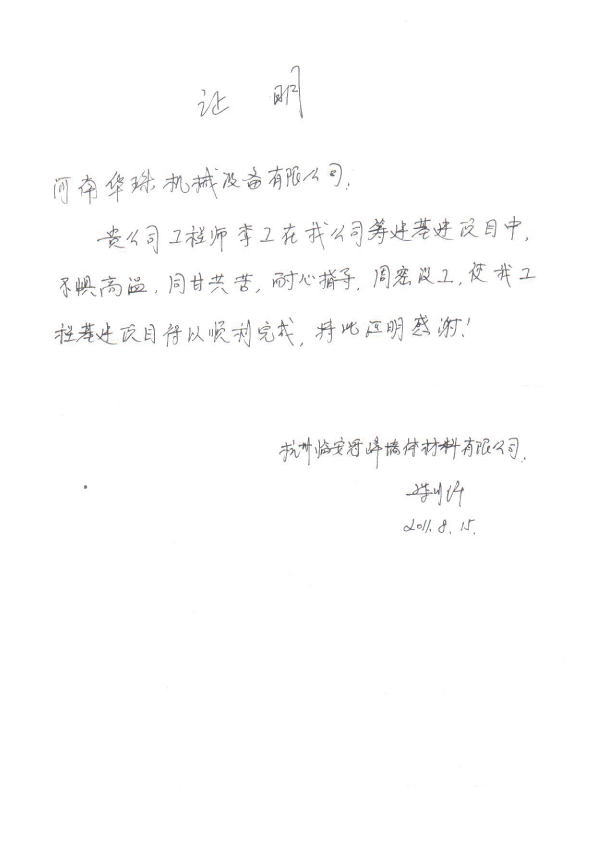 证 明
河南华珠机械设备有限公司.
贵公司工程师李工在我公司筹建基建项目中,
不惧高温,同甘共苦,耐心指导,周密设工,使我工
程基建项目得以顺利完成,特此证明感谢!
杭州临安冠峰墙体材料有限公司.
2011.8.15.